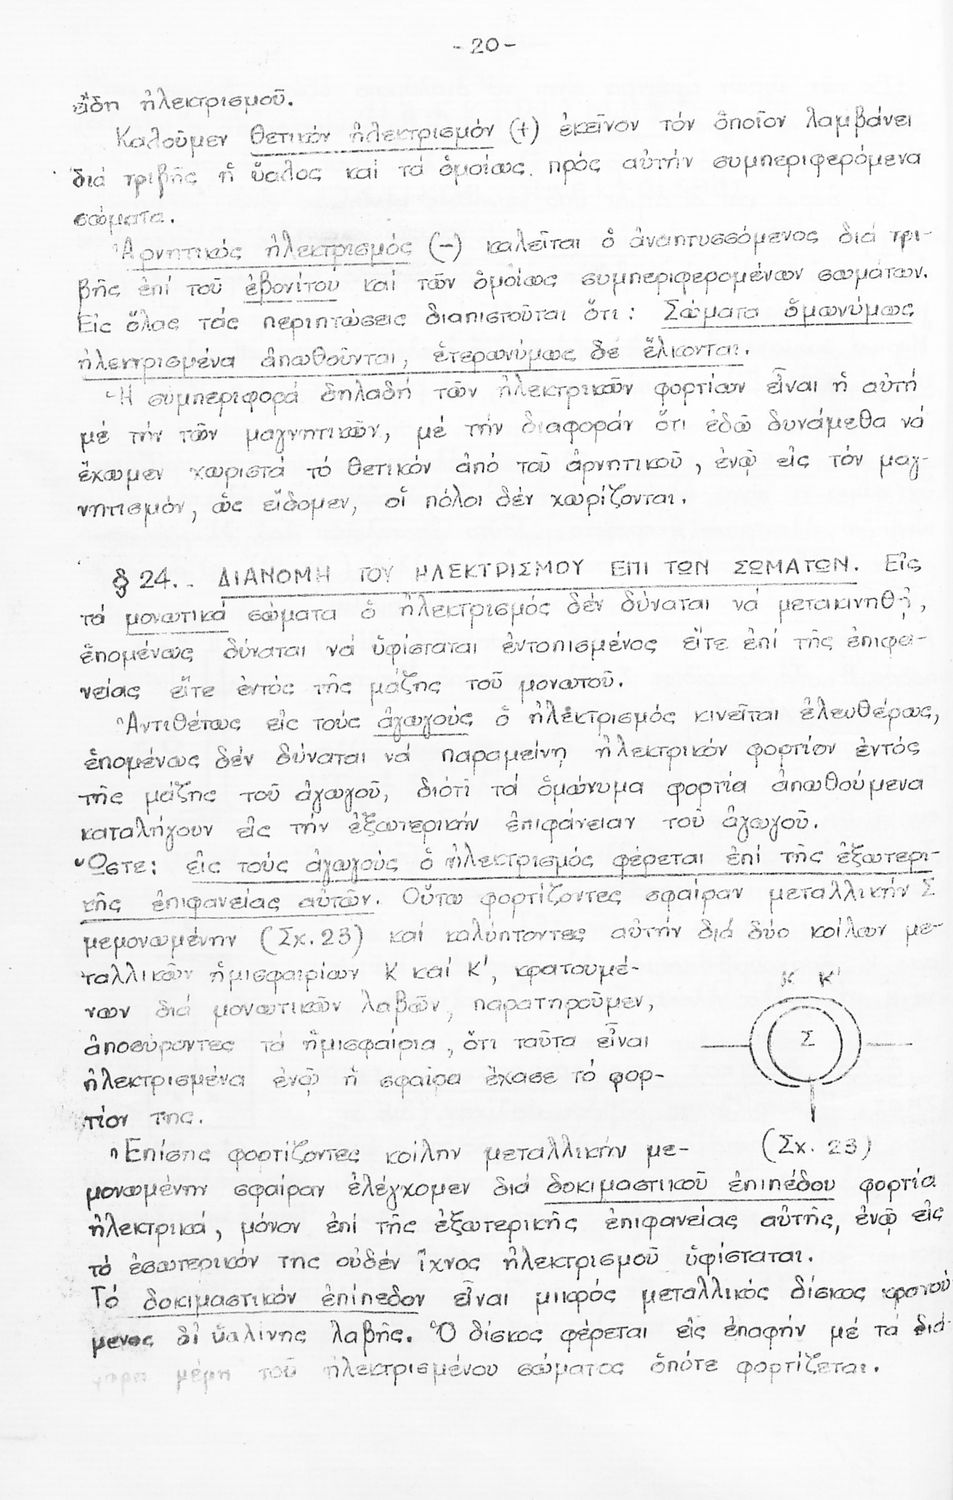 - 20 -
εἴδη ἠλεκτρισμοῦ.
Καλοῦμεν θετικόν ἠλεκτρισμόν (+) ἐκεῖνον τόν ὁποῖον λαμβάνει
διά τριβῆς ἡ ὕαλος καί τά ὁμοίως πρός αὐτήν συμπεριφερόμενα
σώματα.
Ἀρνητικός ἠλεκτρισμός (-) καλεῖται ὁ ἀναπτυσσόμενος διά τρι-
βῆς ἐπί τοῦ ἐβονίτου καί τῶν ὁμοίως συμπεριφερομένων σωμάτων.
Εἰς ὅλας τάς περιπτώσεις διαπιστοῦται ὅτι: Σώματα ὁμωνύμως
ἠλεκτρισμένα ἀπωθοῦνται, ἑτερωνύμως δέ ἕλκονται.
Ἡ συμπεριφορά δηλαδή τῶν ἠλεκτρικῶν φορτίων εἶναι ἡ αὐτή
μέ τήν τῶν μαγνητικῶν, μέ τήν διαφοράν ὅτι ἐδῶ δυνάμεθα νά
ἔχωμεν χωριστά τό θετικόν ἀπό τοῦ ἀρνητικοῦ, ἐνῷ εἰς τόν μαγ-
νητισμόν, ὡς εἴδομεν, οἱ πόλοι δέν χωρίζονται.
§ 24.. ΔΙΑΝΟΜΗ ΤΟΥ ΗΛΕΚΤΡΙΣΜΟΥ ΕΠΙ ΤΩΝ ΣΩΜΑΤΩΝ. Εἰς
τά μονωτικά σώματα ὁ ἠλεκτρισμός δέν δύναται νά μετακινηθῇ,
ἑπομένως δύναται νά ὑφίσταται ἐντοπισμένος εἴτε ἐπί τῆς ἐπιφα-
νείας εἴτε ἐντός τῆς μάζης τοῦ μονωτοῦ.
Ἀντιθέτως εἰς τούς ἀγωγούς ὁ ἠλεκτρισμός κινεῖται ἐλευθέρως,
ἑπομένως δέν δύναται νά παραμείνῃ ἠλεκτρικόν φορτίον ἐντός
τῆς μάζης τοῦ ἀγωγοῦ, διότι τά ὁμώνυμα φορτία ἀπωθούμενα
καταλήγουν εἰς τήν ἐξωτερικήν ἐπιφάνειαν τοῦ ἀγωγοῦ.
Ὥστε: εἰς τούς ἀγωγούς ὁ ἠλεκτρισμός φέρεται ἐπί τῆς ἐξωτερι-
κῆς ἐπιφανείας αὐτῶν. Οὕτω φορτίζοντες σφαῖραν μεταλλικήν Σ
μεμονωμένην (Σχ. 23) καί καλύπτοντες αὐτήν διά δύο κοίλων με-
ταλλικῶν ἡμισφαιρίων Κ καί Κ', κρατουμέ-
νων διά μονωτικῶν λαβῶν, παρατηροῦμεν,
ἀποσύροντες τά ἡμισφαίρια, ὅτι ταῦτα εἶναι
ἠλεκτρισμένα ἐνῷ ἡ σφαῖρα ἔχασε τό φορ-
τίον της.
Κ Κ'
Σ
(Σχ. 23)
Ἐπίσης φορτίζοντες κοίλην μεταλλικήν με-
μονωμένην σφαῖραν ἐλέγχομεν διά δοκιμαστικοῦ ἐπιπέδου φορτία
ἠλεκτρικά, μόνον ἐπί τῆς ἐξωτερικῆς ἐπιφανείας αὐτῆς, ἐνῷ εἰς
τό ἐσωτερικόν της οὐδέν ἴχνος ἠλεκτρισμοῦ ὑφίσταται.
Τό δοκιμαστικόν ἐπίπεδον εἶναι μικρός μεταλλικός δίσκος κρατού
μενος δι' ὑαλίνης λαβῆς. Ὁ δίσκος φέρεται εἰς ἐπαφήν μέ τά διά-
φορα μέρη τοῦ ἠλεκτρισμένου σώματος ὁπότε φορτίζεται.